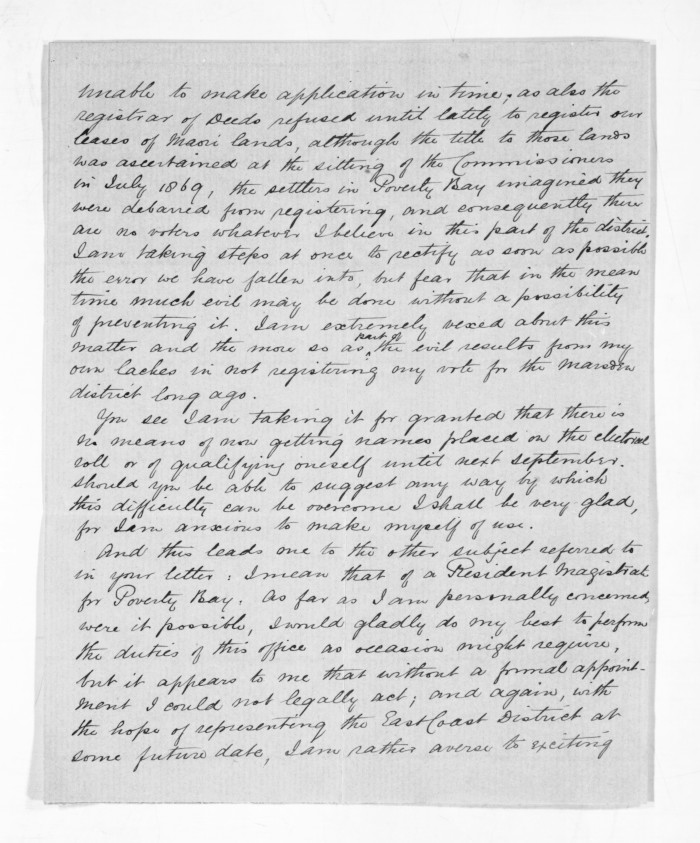 unable to make application in time; as also the
registrar of Deeds refused until lately to register our
leases of Maori lands, although the title to those lands
was ascertained at the sitting of the Commissioners
in July 1869, the settlers in Poverty Bay imagined they
were debarred from registering, and consequently there
are no voters whatever I believe in this part of the district.
I am taking steps at once to rectify as soon as possible
the error we have fallen into, but fear that in the mean
time much evil may be done without a possibility
of preventing it. I am extremely vexed about this
matter and the more so as part of the evil results from my
own laches in not registering my vote for the Marsden
district long ago.
You see I am taking it for granted that there is
no means of now getting names placed on the electoral
roll or of qualifying oneself until next September.
Should you be able to suggest any way by which
this difficulty can be overcome I shall be very glad,
for I am anxious to make myself of use.
And this leads one to the other subject referred to
in your letter: I mean that of a Resident Magistrate
for Poverty Bay. As far as I am personally concerned,
were it possible, I would gladly do my best to perform
the duties of this office as occasion might require,
but it appears to me that without a formal appoint-
ment I could not legally act; and again, with
the hope of representing the East Coast District at
some future date, I am rather averse to exciting